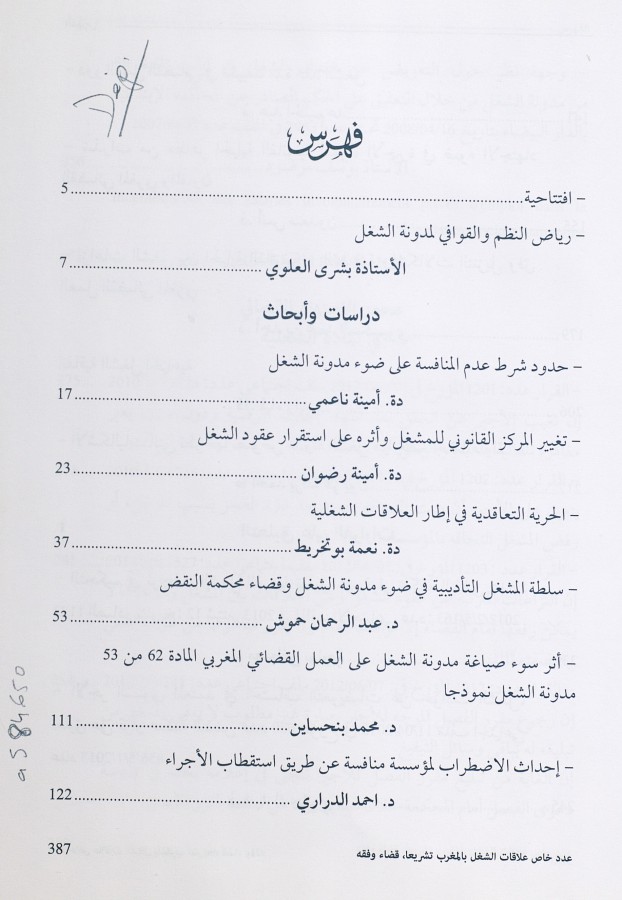 Dépi
فهرس
– افتتاحية..........5
– رياض النظم والقوافي لمدونة الشغل
الأستاذة بشرى العلوي..........7
دراسات وأبحاث
– حدود شرط عدم المنافسة على ضوء مدونة الشغل
دة. أمينة ناعمي..........17
– تغيير المركز القانوني للمشغل وأثره على استقرار عقود الشغل
دة. أمينة رضوان..........23
– الحرية التعاقدية في إطار العلاقات الشغلية
دة. نعمة بوتخريط..........37
– سلطة المشغل التأديبية في ضوء مدونة الشغل وقضاء محكمة النقض
د. عبد الرحمان حموش..........53
– أثر سوء صياغة مدونة الشغل على العمل القضائي المغربي المادة 62 من 53
مدونة الشغل نموذجا
د. محمد بنحساين..........111
– إحداث الاضطراب لمؤسسة منافسة عن طريق استقطاب الأجراء
د. احمد الدراري..........122
عدد خاص علاقات الشغل بالمغرب تشريعا، قضاء وفقه
387
a584650